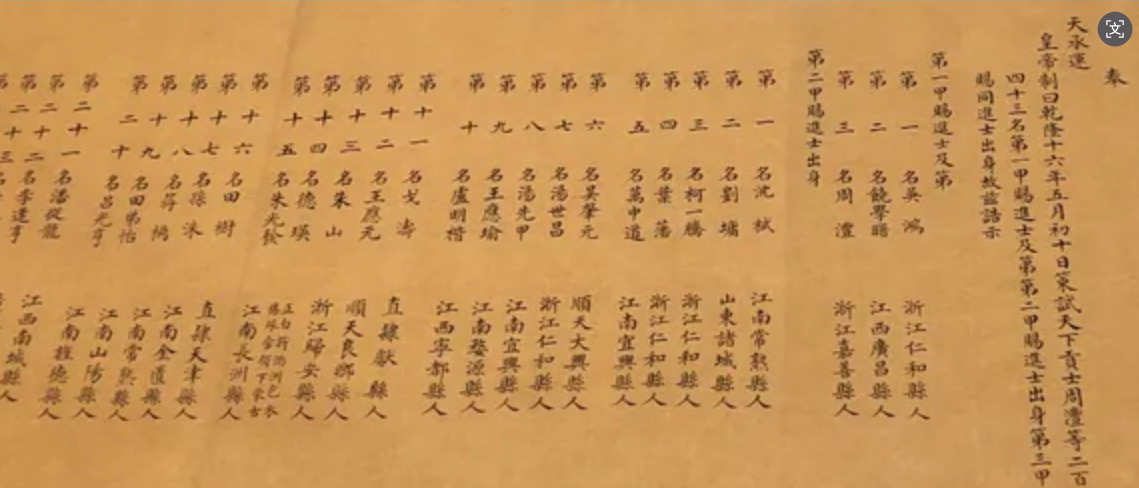 奉
天承運
皇帝制曰乾隆十六年五月初十日策試天下貢士周澧等二百
四十三名第一甲賜進士及第第二甲賜進士出身第三甲
賜同進士出身故茲誥示
第一甲賜進士及第
第一名吳鴻 浙江仁和縣人
第二名饒學曙 江西廣昌縣人
第三名周澧 浙江嘉善縣人
第二甲賜進士出身
第一名沈栻 江南常熟縣人
第二名劉墉 山東諸城縣人
第三名柯一騰 浙江仁和縣人
第四名葉藩 浙江仁和縣人
第五名萬中道 江南宜興縣人
第六名吳肇元 順天大興縣人
第七名湯世昌 浙江仁和縣人
第八名湯先甲 江南宜興縣人
第九名王應瑜 江南婺源縣人
第十名盧明楷 江西寧都縣人
第十一名戈濤 直隸獻縣人
第十二名王應元 順天良鄉縣人
第十三名朱山 浙江歸安縣人
第十四名德瑛 正白旗滿洲包衣
第十五名朱 江南長洲縣人
第十六名田樹 直隸天津縣人
第十七名孫洙 江南金匱縣人
第十八名蔣 江南常熟縣人
第十九名田怡 江南山陽縣人
第二十名呂光亨 江南旌德縣人
第二十一名潘從龍 江西南城縣人
第二十二名李逢亨
第二十三名